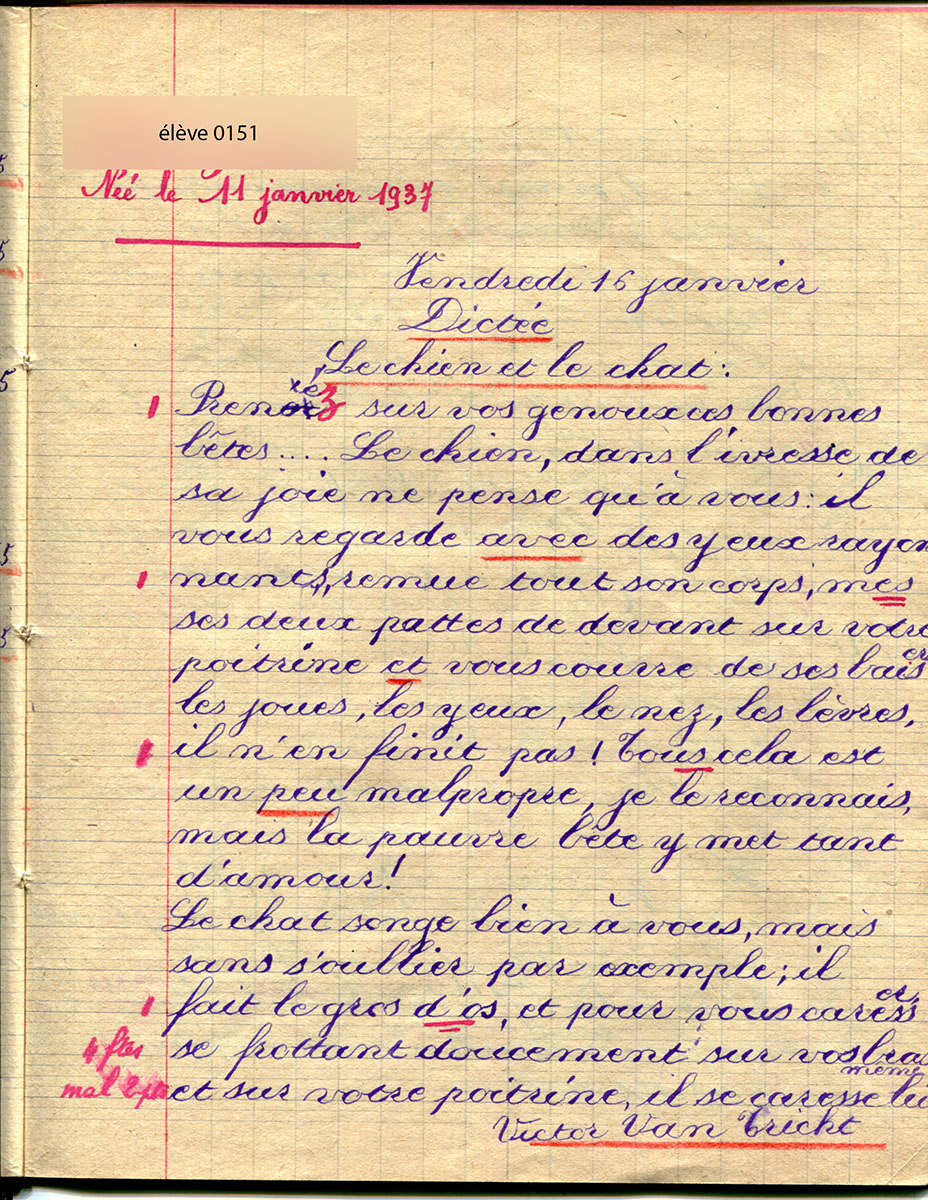 élève 0151
Née le 11 janvier 1937
Vendredi 16 janvier
Dictée
Le chien et le chat :
Prenez sur vos genoux ces bonnes
bêtes.... Le chien, dans l'ivresse de
sa joie ne pense qu'à vous : il
vous regarde avec des yeux rayon
nants, remue tout son corps, mes
ses deux pattes de devant sur votre
poitrine et vous courre de ses baiser
les joues, les yeux, le nez, les lèvres,
il n'en finit pas ! Tous cela est
un peu malpropre, je le reconnais,
mais la pauvre bête y met tant
d'amour !
Le chat songe bien à vous, mais
sans s'oublier par exemple ; il
fait le gros d'os, et pour vous caresser
se frottant doucement sur vos bra
et sur votre poitrine, il se caresse lui
même
Victor Van Tricht
4 ftes
mal